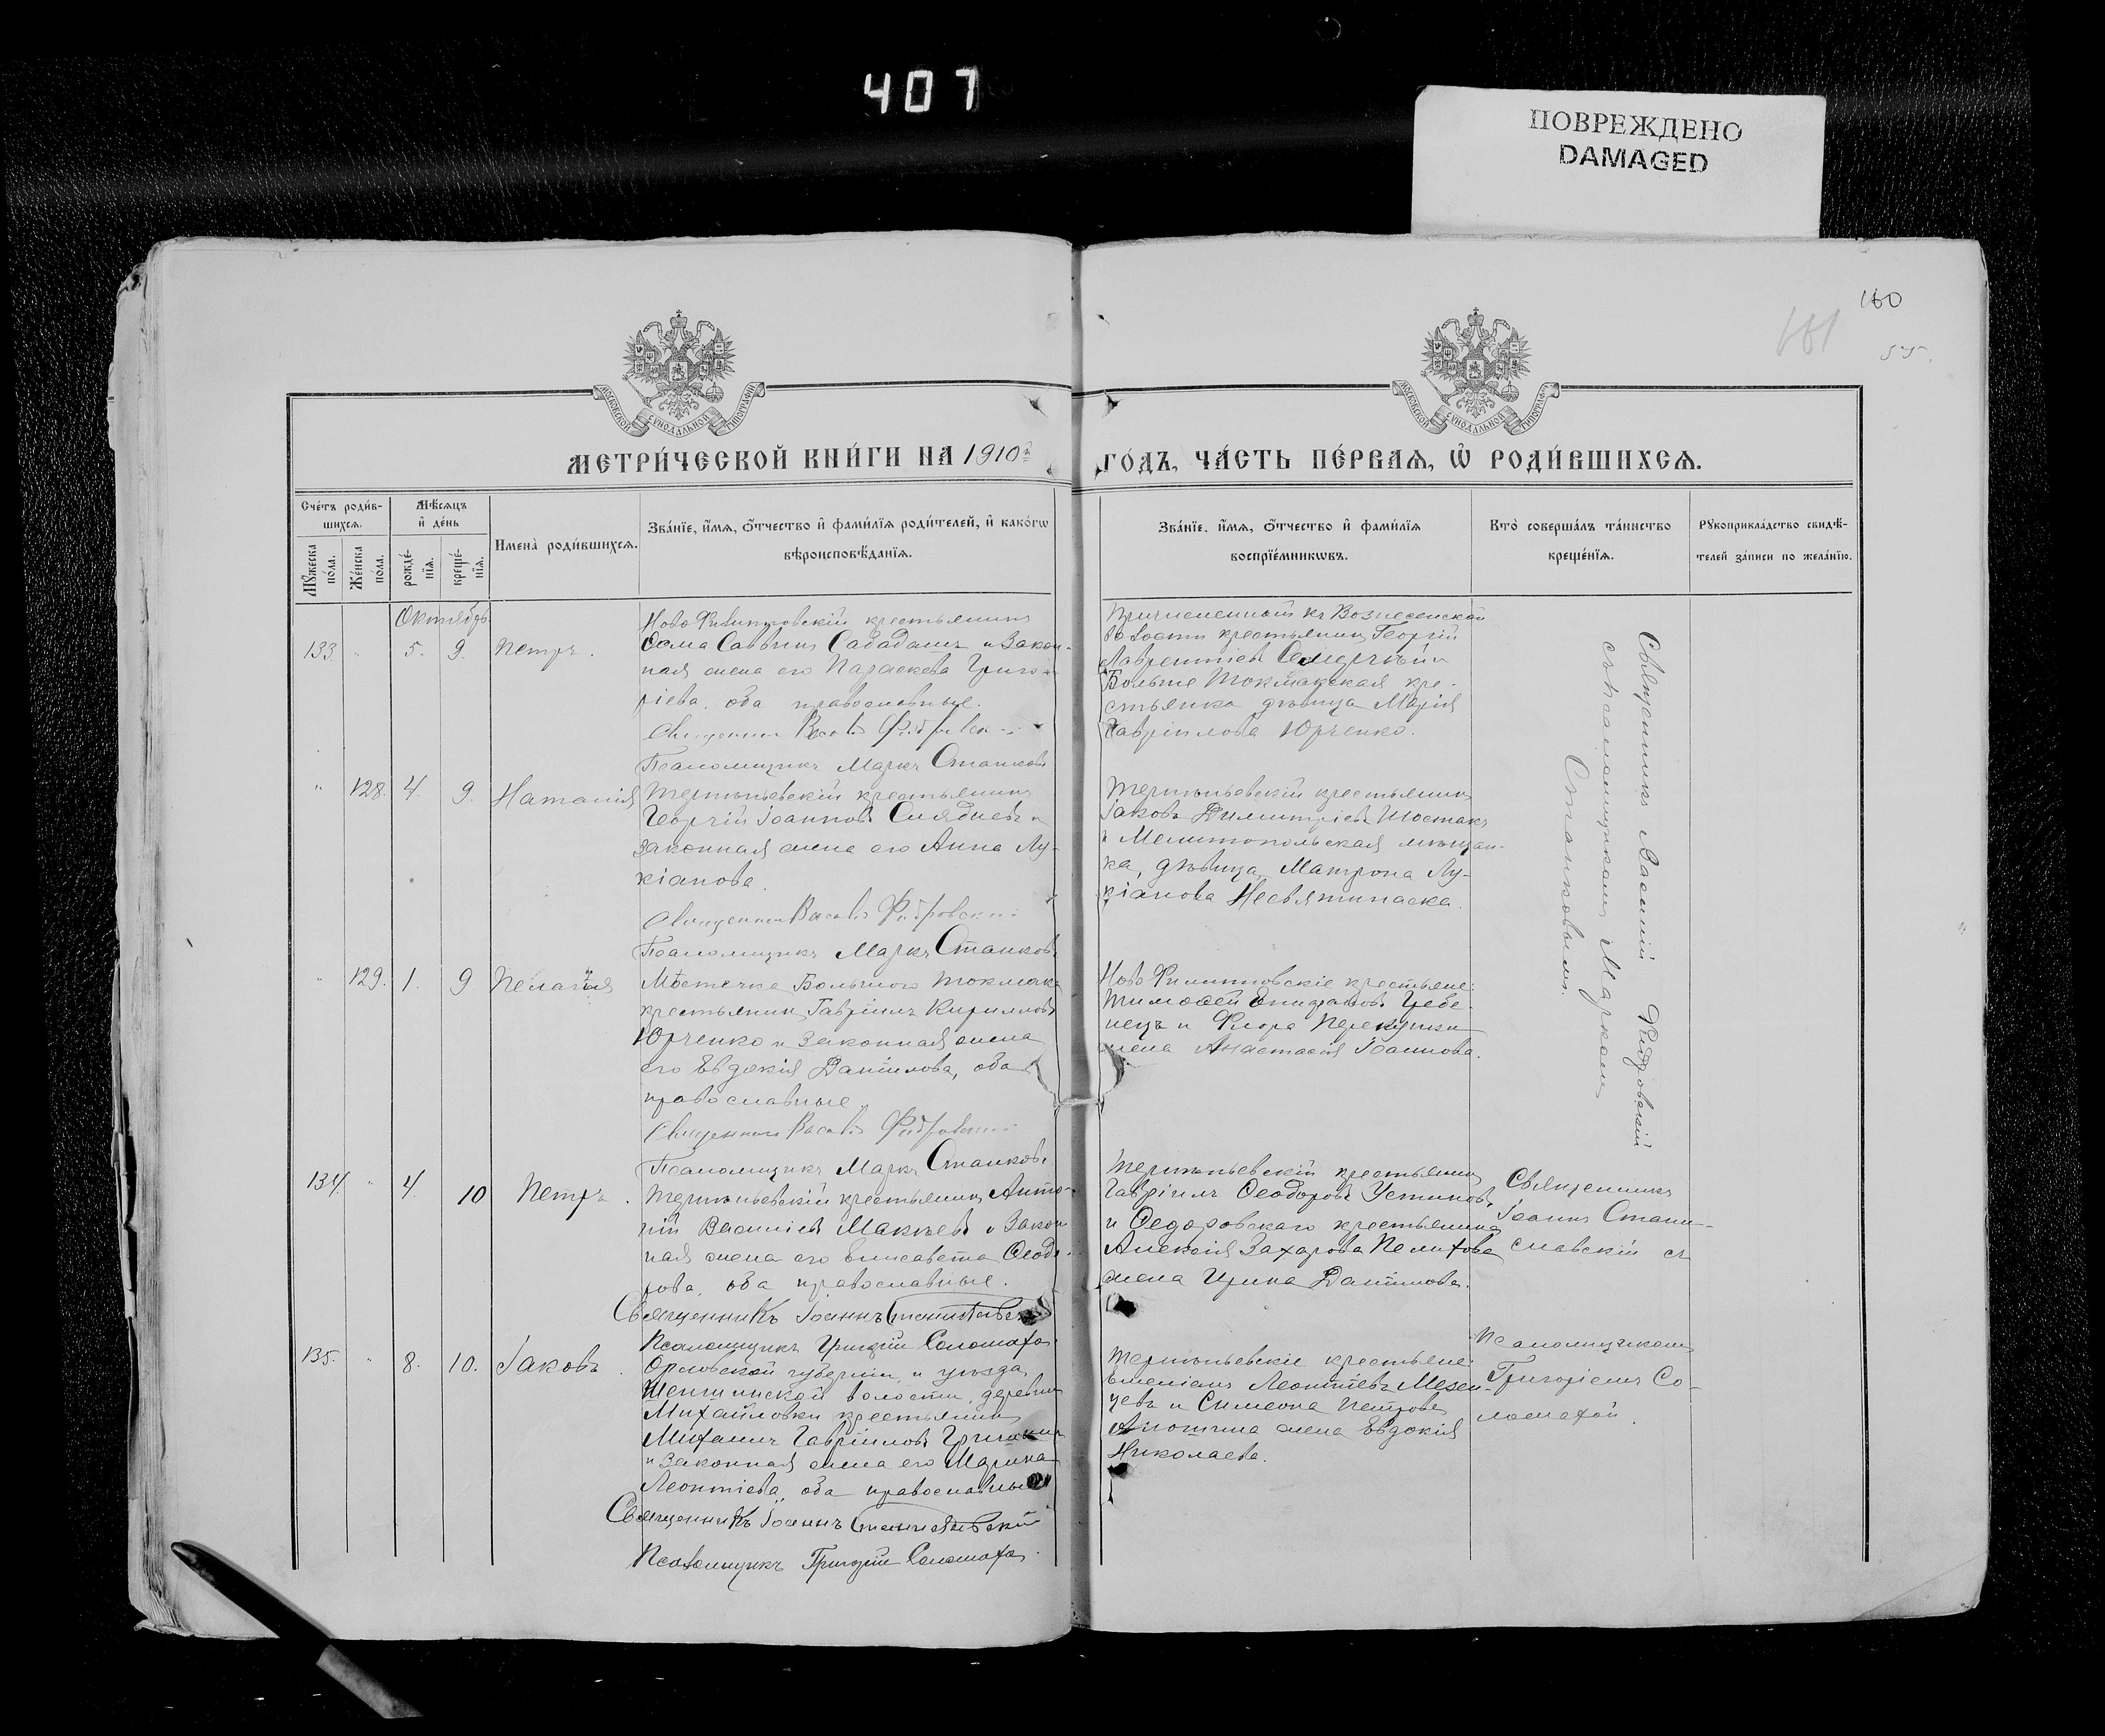 407
ПОВРЕЖДЕНО
DAMAGED
160
161
55.
МОСКОВСКОЙ СѴНОДАЛЬНОЙ ТИПОГРАФІИ
МОСКОВСКОЙ СѴНОДАЛЬНОЙ ТИПОГРАФІИ
МЕТРИ́ЧЕСКОЙ КНИ́ГИ НА 1910й
ГО́ДЪ, ЧА́СТЬ ПЕ́РВАѦ, Ѡ҆ РОДИ́ВШИХСѦ.
Сче́тъ роди́в-
шихсѧ.
Мѣ́сѧцъ
и҆ де́нь
Мꙋ́жеска
по́ла.
Же́нска
по́ла.
рожде́-
нїѧ.
креще́-
нїѧ.
Имена̀ роди́вшихсѧ.
Зва́нїе, и҆́мѧ, ѻ҆́тчество и҆ фами́лїѧ роди́телей, и҆ како́гѡ
вѣроисповѣ́данїѧ.
Зва́нїе, и҆́мѧ, ѻ҆́тчество и҆ фами́лїѧ
воспрїе́мникѡвъ.
Кто̀ соверша́лъ та́инство
креще́нїѧ.
Рꙋкоприкла́дство свидѣ́-
телей за́писи по жела́нїю.
Октябрь
133. " 5. 9. Петръ.
Ново Филипповскій крестьянинъ
Ѳома Саввинъ Сабаданъ и закон-
ная жена его Параскева Григо-
ріева, оба православные.
Священникъ
Псаломщикъ Маркъ Станковъ
Причисленный къ Вознесенской
волости крестьянинъ Георгій
Лаврентіевъ
Больше Токмакская кре-
стьянка дѣвица Марія
Гавріилова Юрченко.
Священникъ Василій Фидровскій
съ псаломщикомъ Маркомъ
Станковымъ.
" 128. 4. 9. Наталія
Терпѣньевскій крестьянинъ
Георгій Іоанновъ Слядневъ и
законная жена его Анна Лу-
кіанова.
Священникъ
Псаломщикъ Маркъ Станковъ
Терпѣньевскій крестьянинъ
Іаковъ Димитріевъ Шостакъ
и Мелитопольская мѣщан-
ка, дѣвица, Матрона Лу-
кіанова Несвятипаска.
" 129. 1. 9 Пелагія
Мѣстечка Большого Токмака
крестьянинъ Гавріилъ Кирилловъ
Юрченко и законная жена
его Евдокія Даніилова, оба
православные
Священникъ
Псаломщикъ Маркъ Станковъ
Ново Филипповскіе крестьяне:
Тимоѳей Епифановъ Гребе-
нецъ и Флора
жена Анастасія Іоаннова.
134. " 4. 10 Петръ.
Терпѣньевскій крестьянинъ Анто-
ній Василіевъ Макѣевъ и закон
ная жена его Елисавета Ѳеодо-
рова, оба православные.
Священникъ Іоаннъ Станиславскій
Псаломщикъ Григорій Саломаха.
Терпѣньевскій крестьянинъ
Гавріилъ Ѳеодоровъ Устиновъ,
и Ѳедоровскаго крестьянина
Алексія Захарова
жена Ирина Даніилова.
Священникъ
Іоаннъ Стани-
славскій съ
135. " 8. 10. Іаковъ.
Орловской губерніи и уѣзда,
волости, деревни
Михайловки крестьянинъ
Михаилъ Гавріиловъ
и законная жена его Марина
Леонтіева, оба православные
Священникъ Іоаннъ Станиславскій
Псаломщикъ Григорій Саломаха.
Терпѣньевскіе крестьяне:
Леонтіевъ Мезен-
цевъ и Симеона Петрова
жена Евдокія
Николаева.
Псаломщикомъ
Григоріемъ Со-
ломахой.